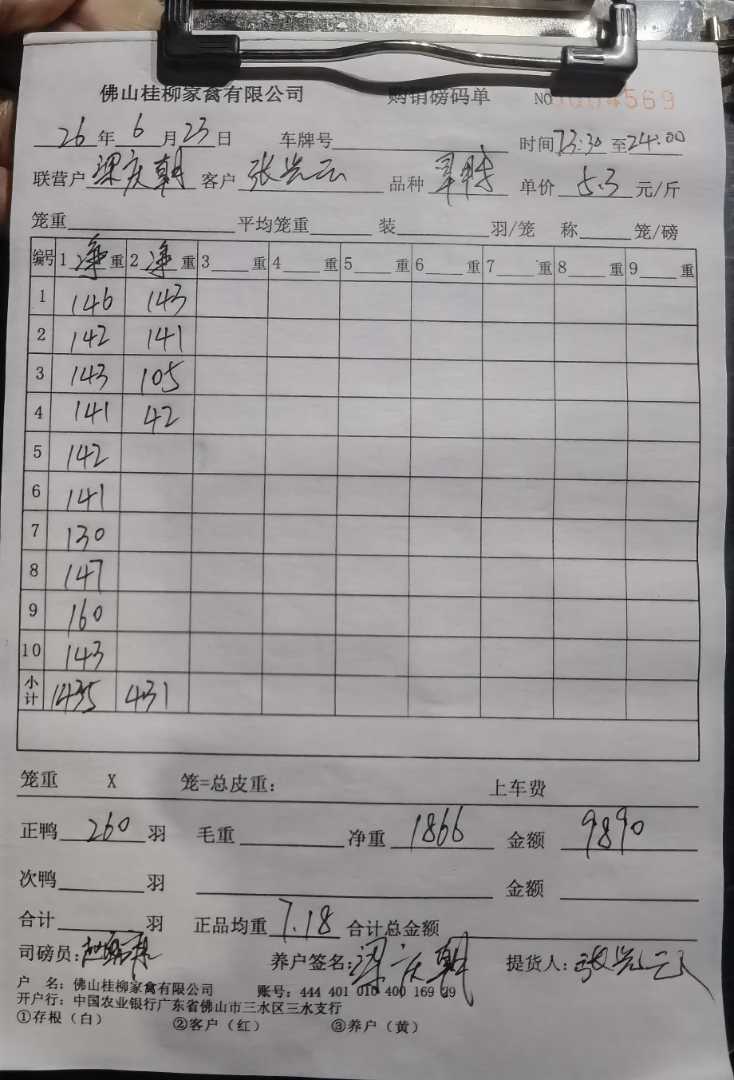 佛山桂柳家禽有限公司 购销磅码单 NO 0004569
26年6月23日 车牌号 时间23:30至24:00
联营户 梁庆朝 客户 张光云 品种 单价 5.3 元/斤
笼重 平均笼重 装 羽/笼 称 笼/磅
编号 1 净 重 2 净 重 3 重 4 重 5 重 6 重 7 重 8 重 9 重
1 146 143
2 142 141
3 143 105
4 141 42
5 142
6 141
7 130
8 147
9 160
10 143
小计 1435 431
笼重 X 笼=总皮重: 上车费
正鸭 260 羽 毛重 净重 1866 金额 9890
次鸭 羽 金额
合计 羽 正品均重 7.18 合计总金额
司磅员: 养户签名: 梁庆朝 提货人: 张光云
户 名: 佛山桂柳家禽有限公司 账号: 444 401 010 400 169 29
开户行: 中国农业银行广东省佛山市三水区三水支行
①存根(白) ②客户(红) ③养户(黄)